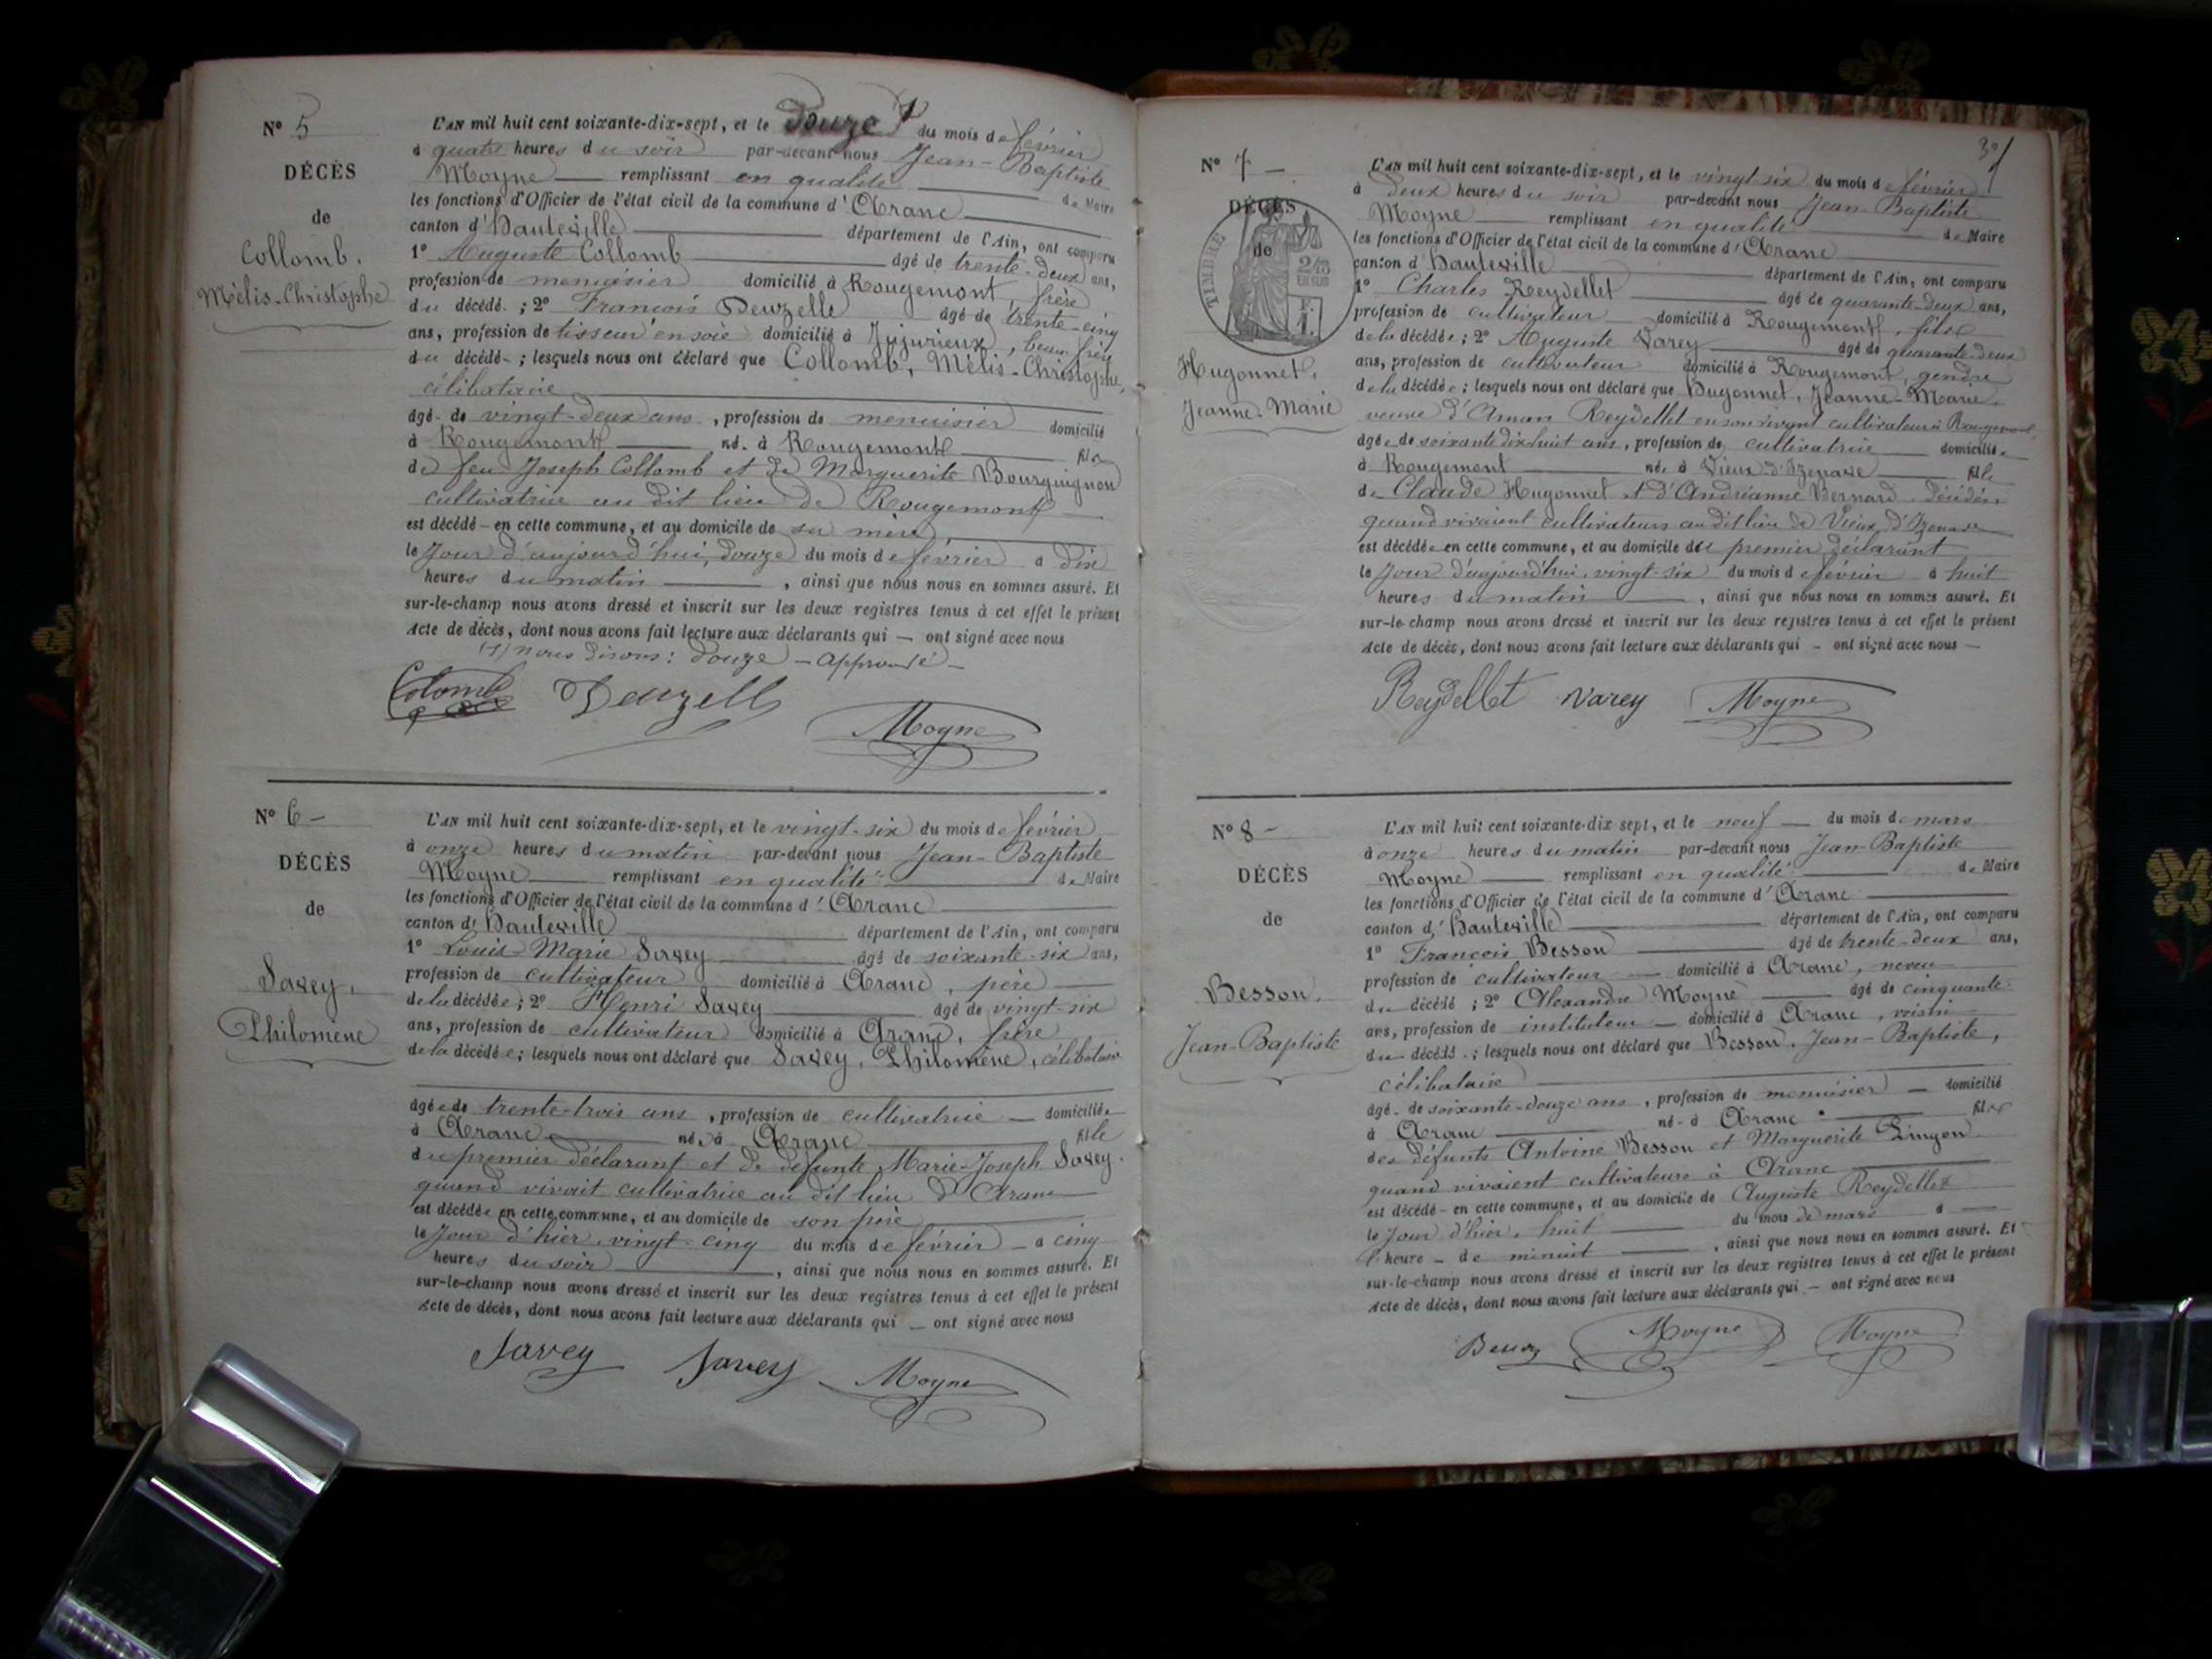 N° 5
DÉCÈS
de
Collomb.
Mélis-Christophe
L'AN mil huit cent soixante-dix-sept, et le Douze du mois de février
à quatre heures du soir par-devant nous Jean-Baptiste
Moyne remplissant en qualité de Maire
les fonctions d'Officier de l'état civil de la commune d'Aranc
canton d'Hauteville département de l'Ain, ont comparu
1° Auguste Collomb âgé de trente-deux ans,
profession de menuisier domicilié à Rougemont, frère
du décédé. ; 2° François Deuzelle âgé de trente-cinq
ans, profession de tisseur en soie domicilié à Jujurieux, beau-frère
du décédé- ; lesquels nous ont déclaré que Collomb, Mélis-Christophe,
célibataire
âgé- de vingt-deux ans, profession de menuisier domicilié
à Rougemont né. à Rougemont fils
de feu Joseph Collomb et de Marguerite Bourguignon
cultivatrice au dit lieu de Rougemont
est décédé - en cette commune, et au domicile de sa mère
le Jour d'aujourd'hui, douze du mois de février à dix
heures du matin, ainsi que nous nous en sommes assuré. Et
sur-le-champ nous avons dressé et inscrit sur les deux registres tenus à cet effet le présent
Acte de décès, dont nous avons fait lecture aux déclarants qui — ont signé avec nous
(1) nous disons : douze - approuvé -
Colomb Deuzell
Moyne
N° 6 -
DÉCÈS
de
Savey,
Philomène
L'AN mil huit cent soixante-dix-sept, et le vingt-six du mois de février
à onze heures du matin par-devant nous Jean-Baptiste
Moyne remplissant en qualité de Maire
les fonctions d'Officier de l'état civil de la commune d'Aranc
canton d'Hauteville département de l'Ain, ont comparu
1° Louis-Marie Savey âgé de soixante-six ans,
profession de cultivateur domicilié à Aranc, père
de la décédée ; 2° Henri Savey âgé de vingt-six
ans, profession de cultivateur domicilié à Aranc, frère
de la décédée ; lesquels nous ont déclaré que Savey, Philomène, célibataire
âgée de trente-trois ans, profession de cultivatrice — domiciliée
à Aranc née à Aranc fille
du premier déclarant et de défunte Marie-Joseph Savey.
quand vivait cultivatrice au dit lieu d'Aranc
est décédée en cette commune, et au domicile de son père
le Jour d'hier, vingt-cinq du mois de février - à cinq
heures du soir, ainsi que nous nous en sommes assuré. Et
sur-le-champ nous avons dressé et inscrit sur les deux registres tenus à cet effet le présent
Acte de décès, dont nous avons fait lecture aux déclarants qui — ont signé avec nous
Savey Savey Moyne
N° 7 -
DÉCÈS
de
TIMBRE
2/10
EN SUS
Hugonnet,
Jeanne-Marie
L'AN mil huit cent soixante-dix-sept, et le vingt-six du mois de février
à deux heures du soir par-devant nous Jean-Baptiste
Moyne remplissant en qualité de Maire
les fonctions d'Officier de l'état civil de la commune d'Aranc
canton d'Hauteville département de l'Ain, ont comparu
1° Charles Reydellet âgé de quarante-deux ans,
profession de cultivateur domicilié à Rougemont, fils
de la décédée ; 2° Auguste Varey âgé de quarante-deux
ans, profession de cultivateur domicilié à Rougemont, gendre
de la décédée ; lesquels nous ont déclaré que Hugonnet, Jeanne-Marie,
veuve d'Aman Reydellet en son vivant cultivateur à Rougemont,
âgée de soixante dix huit ans, profession de cultivatrice domiciliée
à Rougemont née à Vieux d'Izenave fille
de Claude Hugonnet et d'Andréanne Bernard, décédés,
quand vivaient cultivateurs au dit lieu de Vieux d'Izenave
est décédée en cette commune, et au domicile du premier déclarant
le Jour d'aujourd'hui, vingt-six du mois de février à huit
heures du matin, ainsi que nous nous en sommes assuré. Et
sur-le-champ nous avons dressé et inscrit sur les deux registres tenus à cet effet le présent
Acte de décès, dont nous avons fait lecture aux déclarants qui - ont signé avec nous —
Reydellet Varey Moyne
N° 8 -
DÉCÈS
de
Besson.
Jean-Baptiste
L'AN mil huit cent soixante-dix sept, et le neuf — du mois de mars
à onze heures du matin par-devant nous Jean-Baptiste
Moyne remplissant en qualité de Maire
les fonctions d'Officier de l'état civil de la commune d'Aranc
canton d'Hauteville département de l'Ain, ont comparu
1° François Besson âgé de trente-deux ans,
profession de cultivateur — domicilié à Aranc, neveu
du décédé ; 2° Alexandre Moyne âgé de cinquante
ans, profession de instituteur — domicilié à Aranc, voisin
du décédé - ; lesquels nous ont déclaré que Besson, Jean-Baptiste,
célibataire
âgé- de soixante-douze ans, profession de menuisier — domicilié
à Aranc né- à Aranc fils
des défunts Antoine Besson et Marguerite
quand vivaient cultivateurs à Aranc
est décédé - en cette commune, et au domicile de Auguste Reydellet
le Jour d'hier, huit du mois de mars à —
l'heure - de minuit, ainsi que nous nous en sommes assuré. Et
sur-le-champ nous avons dressé et inscrit sur les deux registres tenus à cet effet le présent
Acte de décès, dont nous avons fait lecture aux déclarants qui — ont signé avec nous
Moyne Moyne